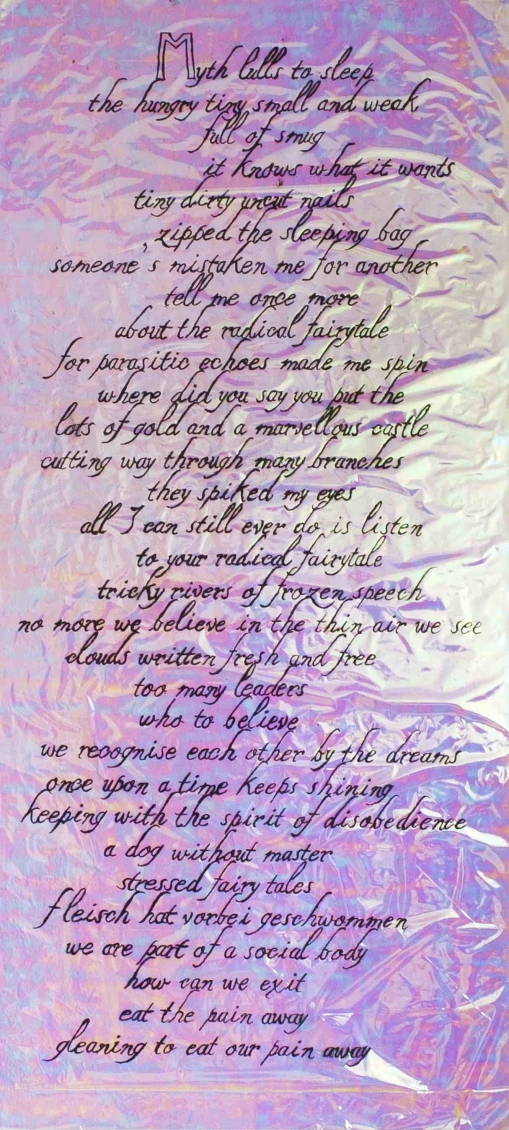 Myth lulls to sleep
the hungry tiny small and weak
full of smug
it knows what it wants
tiny dirty uncut nails
, zipped the sleeping bag
someone's mistaken me for another
tell me once more
about the radical fairytale
for parasitic echoes made me spin
where did you say you put the
lots of gold and a marvellous castle
cutting way through many branches
they spiked my eyes
all I can still ever do is listen
to your radical fairytale
tricky rivers of frozen speech
no more we believe in the thin air we see
clouds written fresh and free
too many leaders
who to believe
we recognise each other by the dreams
once upon a time keeps shining
keeping with the spirit of disobedience
a dog without master
stressed fairy tales
fleisch hat vorbei geschwommen
we are part of a social body
how can we exit
eat the pain away
gleaning to eat our pain away